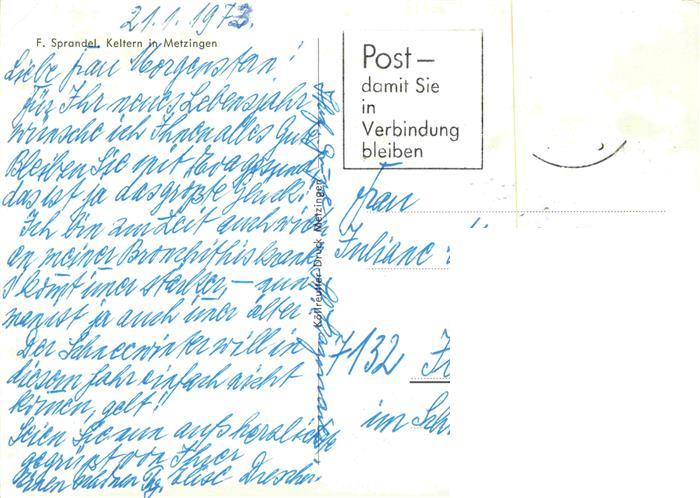 21.1.1973.
F. Sprandel, Keltern in Metzingen
Liebe Frau Morgenstern!
für Ihr neues Lebensjahr
wünsche ich Ihnen alles Gute
Bleiben Sie mit
das ist ja das größte Glück!
Ich bin zur Zeit auch wieder
an meiner Bronchithis krank
's kom̄t im̄er stärker, — nun
man ist ja auch im̄er älter
Der Schneewinter will in
diesem Jahr einfach nicht
kom̄en, gelt!
Seien Sie nun aufs herzlichste
gegrüßt von Ihrer
Elise Drescher.
Köllreutter-Druck Metzingen
Post—
damit Sie
in
Verbindung
bleiben
Frau
Juliane
7132
im Sch